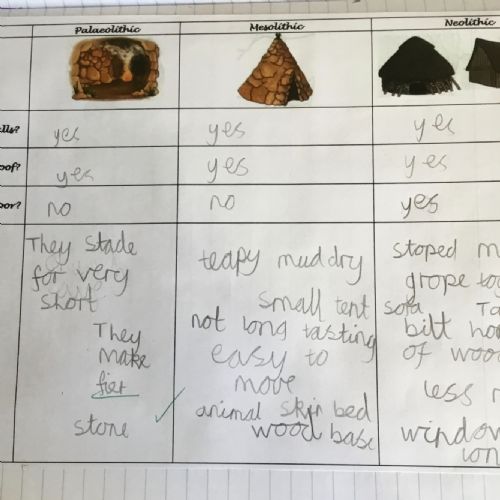 Palaeolithic Mesolithic Neolithic
lls? yes yes yes
oof? yes yes yes
oor? no no yes
They stade
for very
short
They
make
fier
stone
teapy mud dry
small tent
not long tasting
easy to
move
animal skin bed
wood base
stoped m
grope too
sofa Ta
bilt hou
of wood
less
window